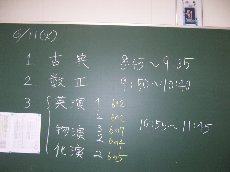 6/11(火)
1 古典 8:45〜9:35
2 数II 9:50〜10:40
3 英演 1 602
2 602
物演 3 609 10:55〜11:45
2 604
化演 2 605